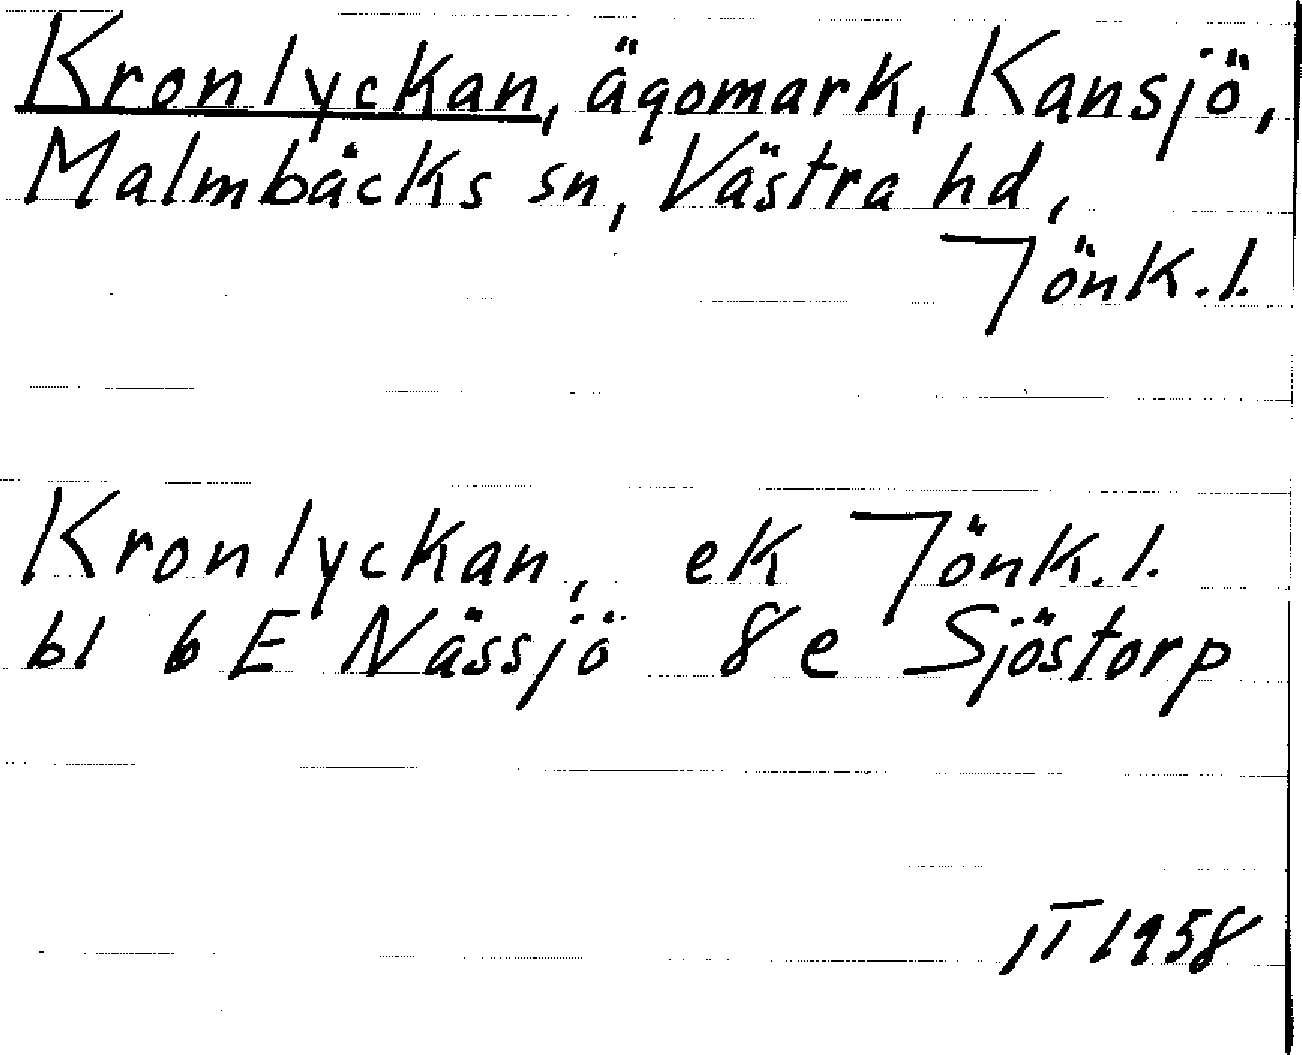 Kronlyckan, ägomark, Kansjö,
Malmbäcks sn, Västra hd,
Jönk.l.
Kronlyckan, ek Jönk.l.
bl 6 E Nässjö 8 e Sjöstorp
IT 1958